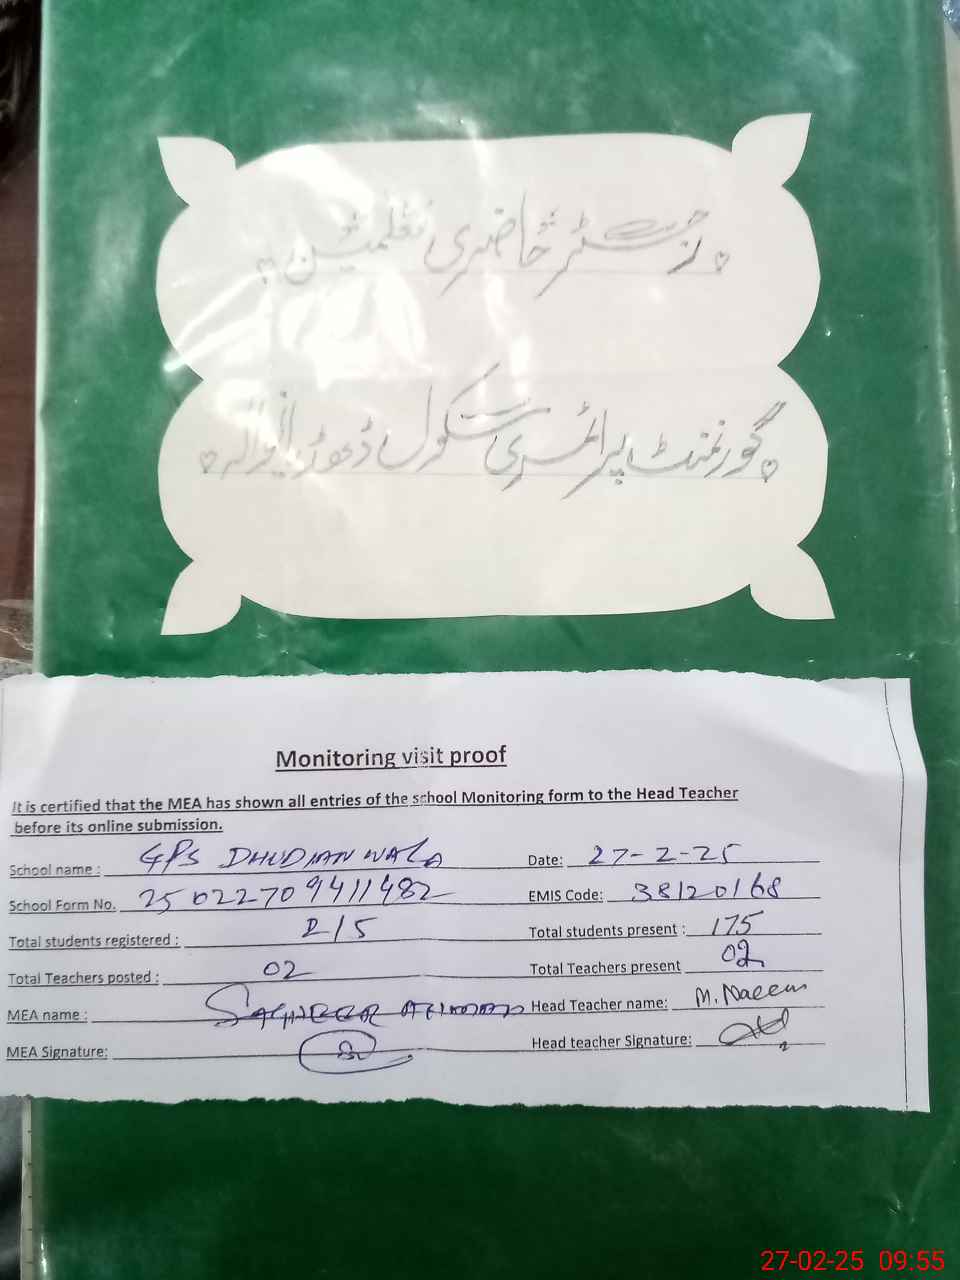 رجسٹر حاضری معلمین
گورنمنٹ پرائمری سکول
Monitoring visit proof
It is certified that the MEA has shown all entries of the school Monitoring form to the Head Teacher
before its online submission.
School name : GPS DHUDIANWALA Date: 27-2-25
School Form No. 25022709411482 EMIS Code: 38120168
Total students registered : 215 Total students present : 175
Total Teachers posted : 02 Total Teachers present 02
MEA name : SAGHEER AHMAD Head Teacher name: M. Naeem
MEA Signature: Head teacher Signature:
27-02-25 09:55